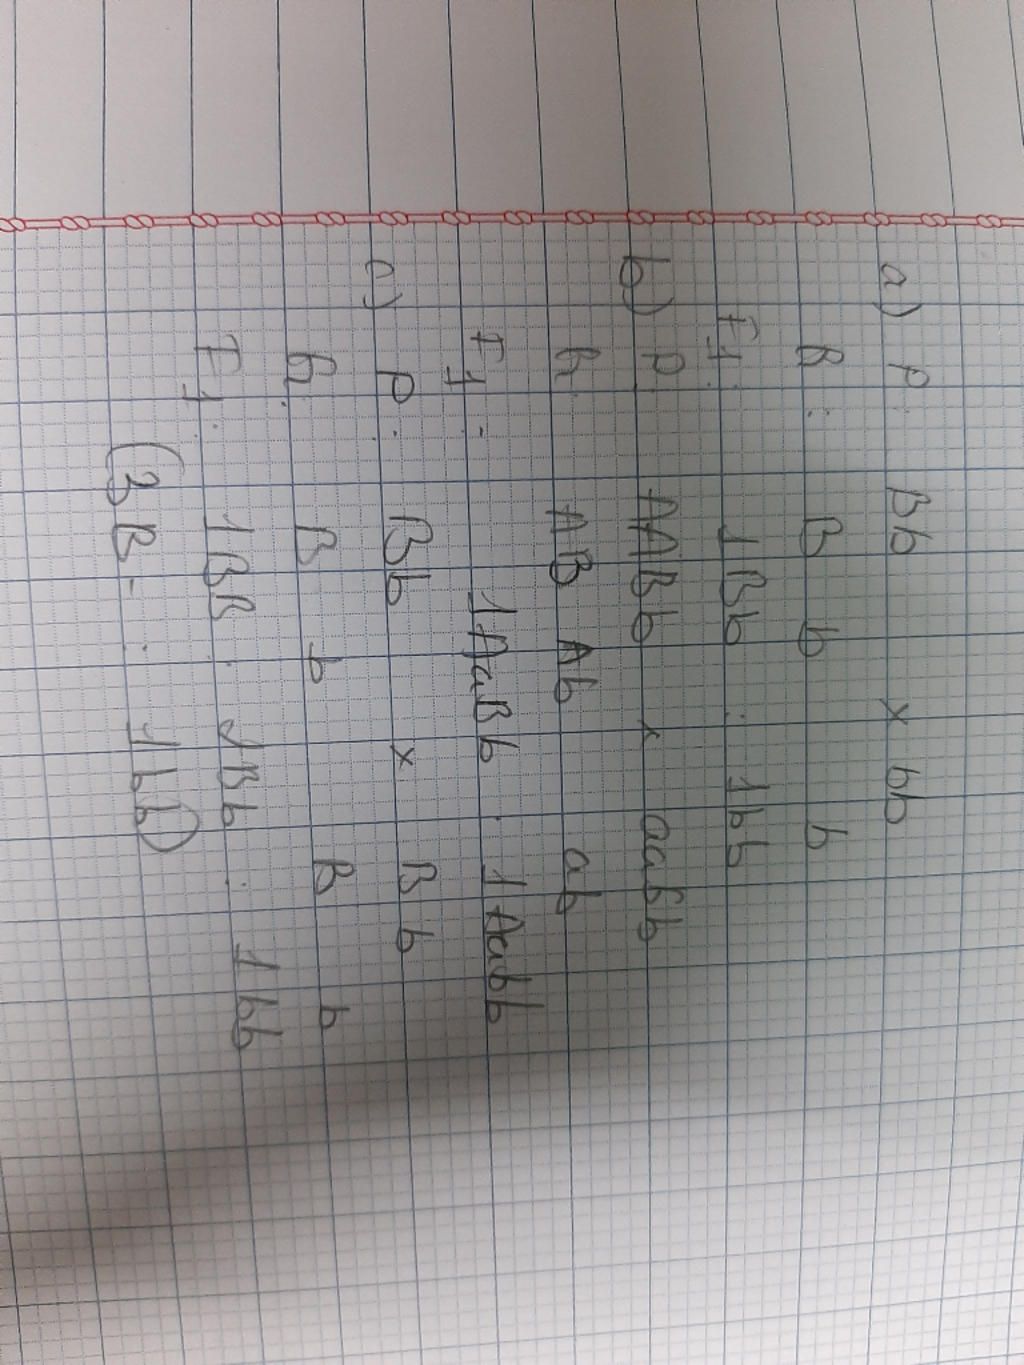 a) P: Bb x bb
G: B b b
F1: 1Bb : 1bb
b) P: AABb x aabb
G: AB Ab ab
F1: 1AaBb : 1Aabb
c) P: Bb x Bb
G: B b B b
F1: 1BB : 2Bb : 1bb
(3B- : 1bb)